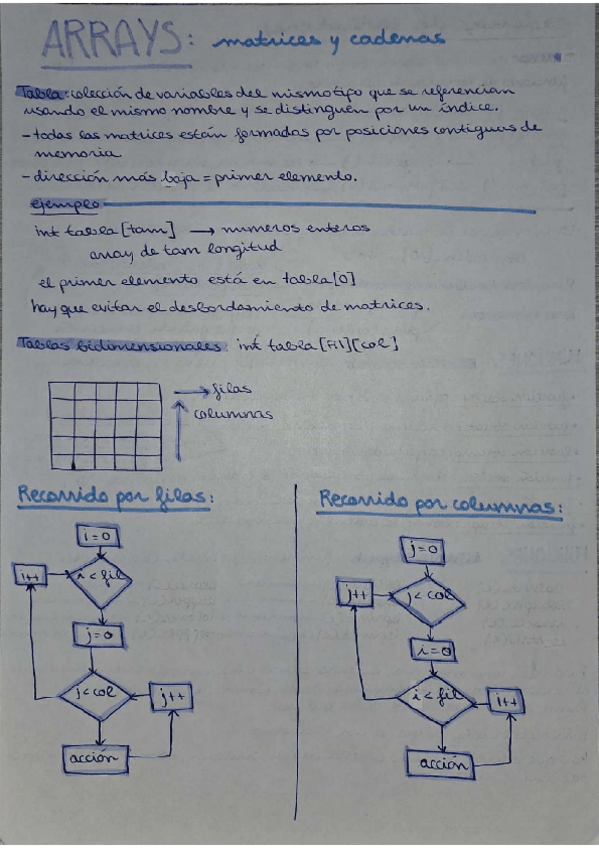 ARRAYS: matrices y cadenas
Tabla: colección de variables del mismo tipo que se referencian
usando el mismo nombre y se distinguen por un índice.
- todas las matrices están formadas por posiciones contiguas de
memoria
- dirección más baja = primer elemento.
ejemplo
int tabla [tam] → numeros enteros
array de tam longitud
el primer elemento está en tabla[0]
hay que evitar el desbordamiento de matrices.
Tablas bidimensionales: int tabla [Fil][col]
→ filas
columnas
Recorrido por filas:
i=0
i++
i < fil
j=0
j < col
j++
acción
Recorrido por columnas:
j=0
j++
j < col
i=0
i < fil
i++
acción